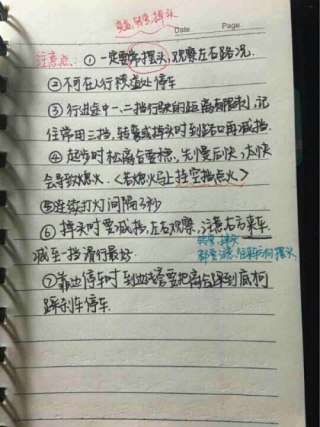 变道, 转弯, 掉头
Date. Page.
注意点、① 一定要常摆头, 观察左右路况.
② 不可在人行横道处停车
③ 行进途中一、二挡行驶的距离有限制, 记
住常用三挡, 转弯或掉头时到路口再减挡.
④ 起步时松离合要稳, 先慢后快, 太快
会导致熄火. <若熄火马上挂空挡点火>
⑤ 连续打灯间隔3秒
⑥ 掉头时要减挡, 左右观察, 注意右方来车.
减至一挡滑行最好.
转弯, 掉头
都要注意
⑦ 靠边停车时 到边线需要把离合踩到底构
踩刹车停车.